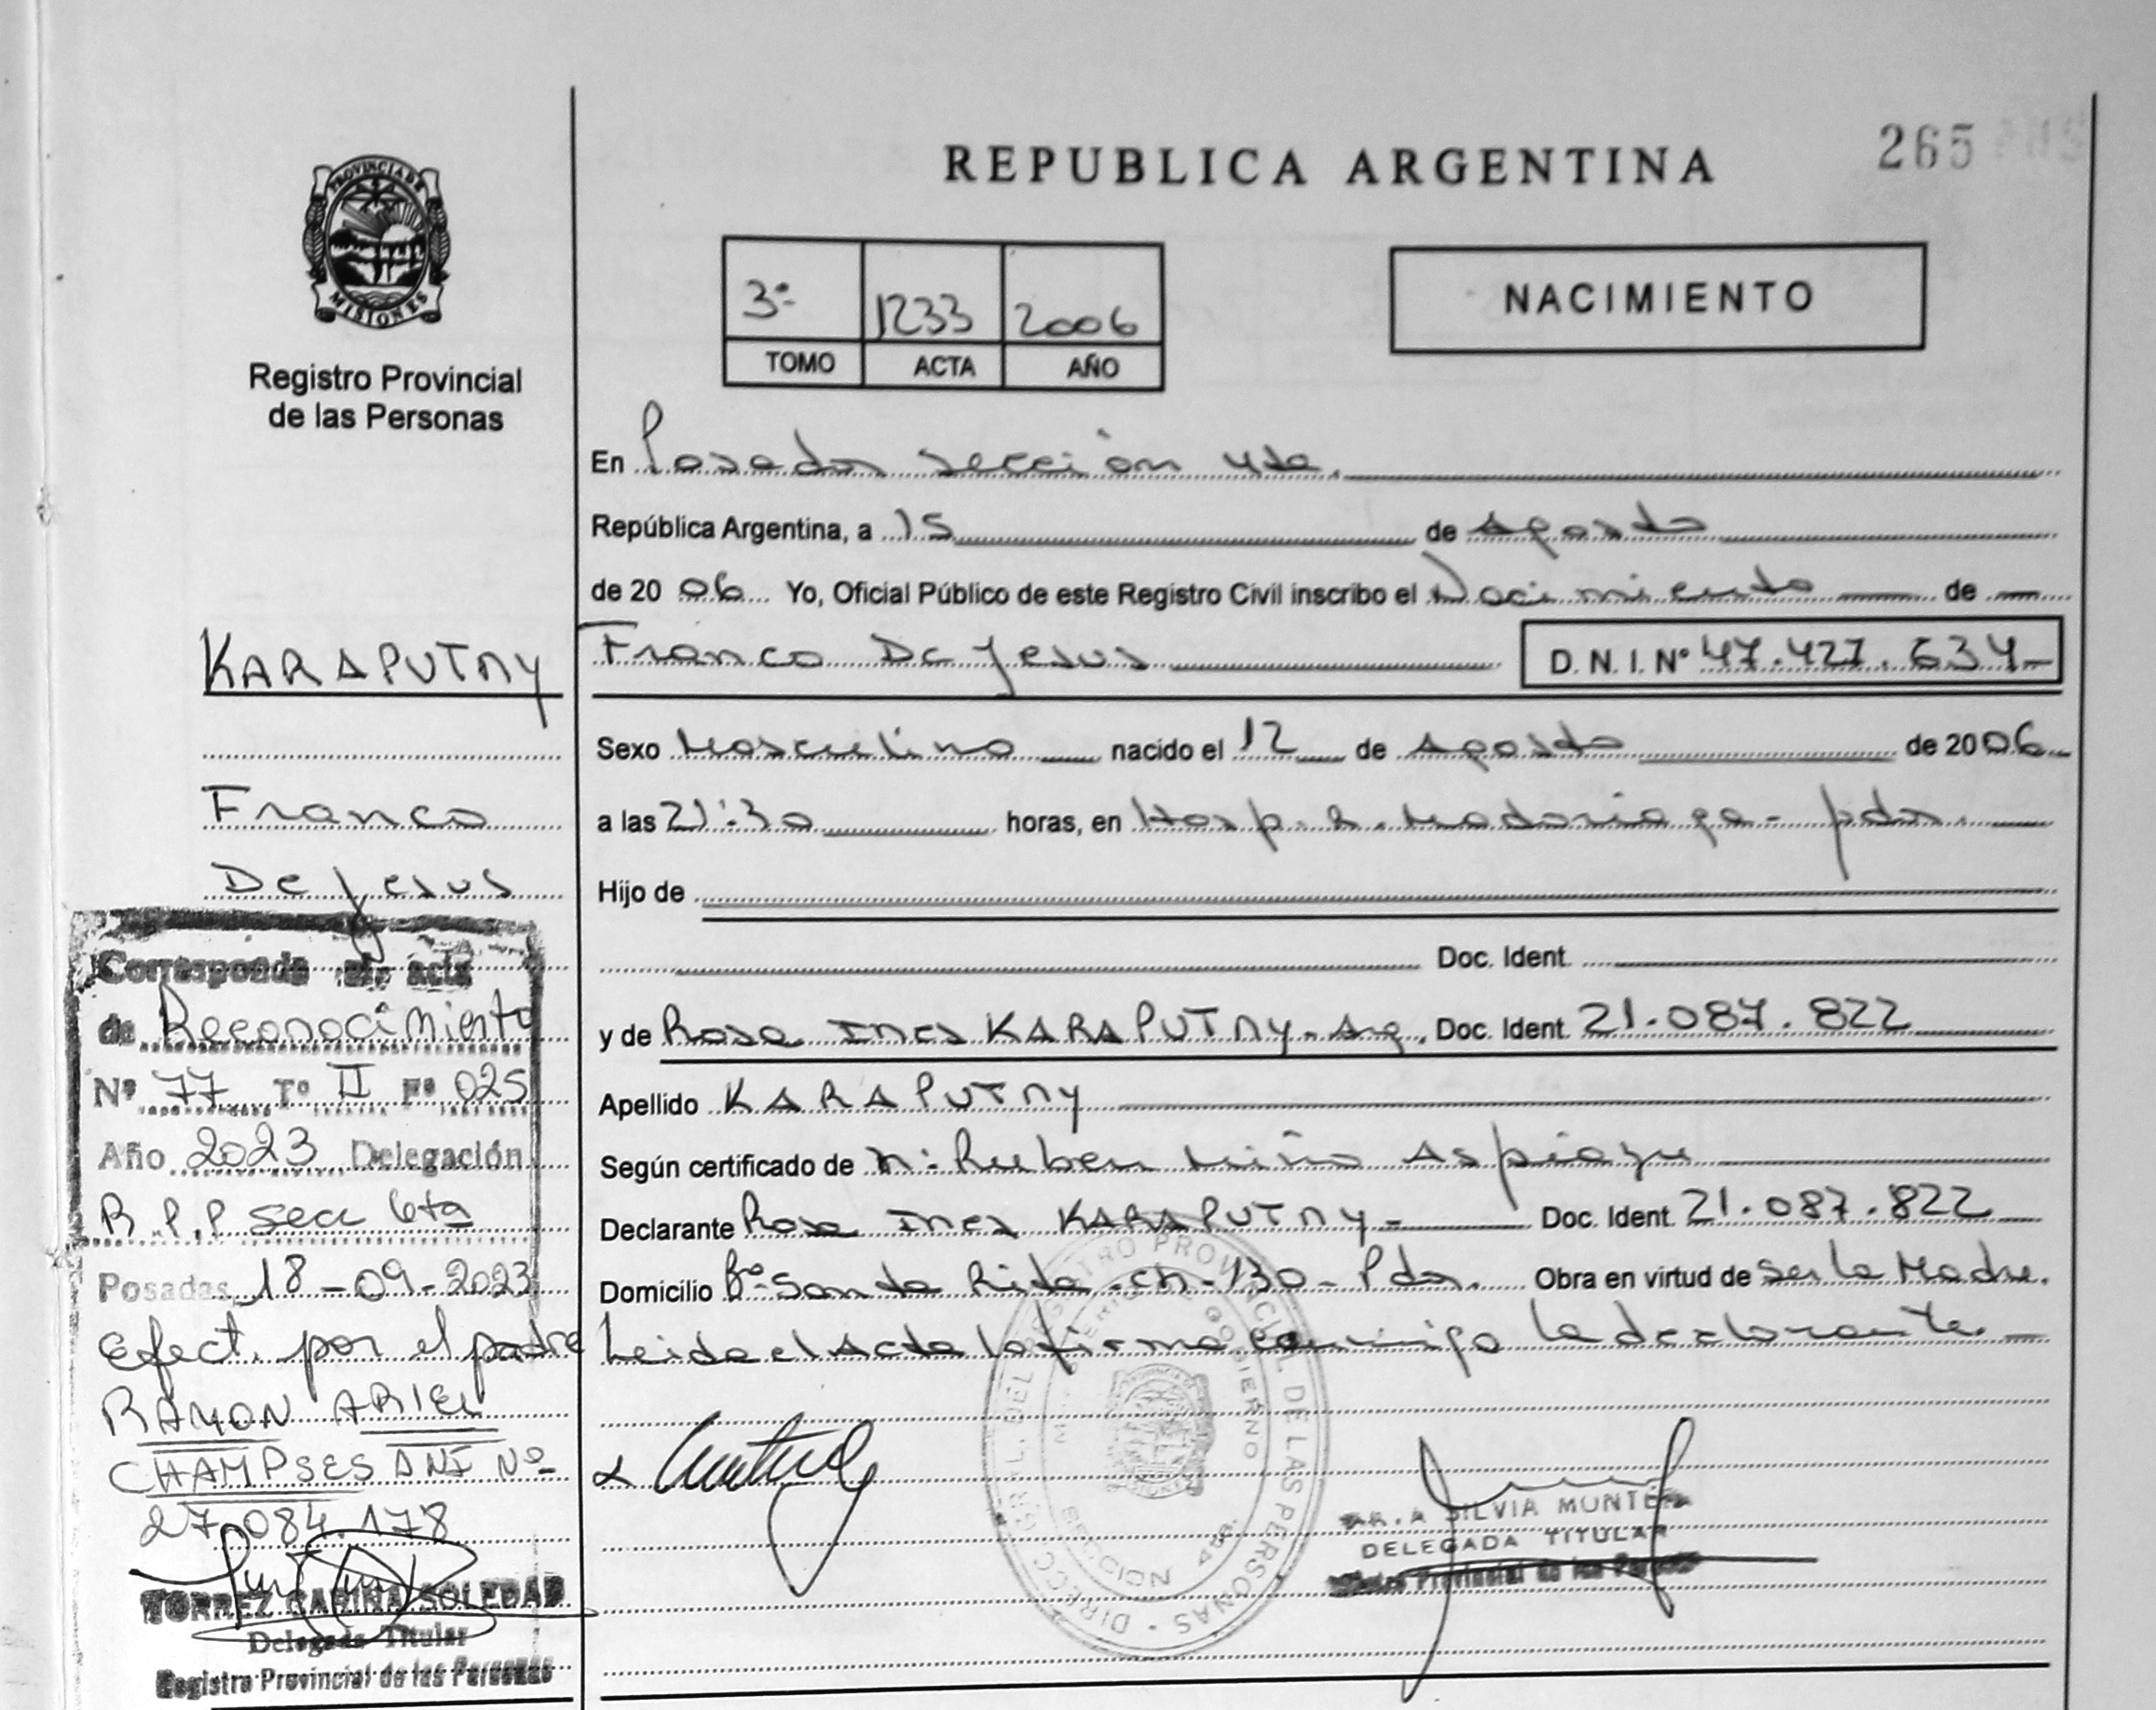 REPUBLICA ARGENTINA
265
PROVINCIA DE
MISIONES
Registro Provincial
de las Personas
3º 1233 2006
TOMO ACTA AÑO
NACIMIENTO
En Posadas sección 4ta.
República Argentina, a 15 de Agosto
de 2006 Yo, Oficial Público de este Registro Civil inscribo el Nacimiento de
Franco De Jesus D. N. I. Nº 47.427.634
Sexo Masculino nacido el 12 de Agosto de 2006
a las 21:30 horas, en Hosp. R. Madariaga - pdas.
Hijo de
Doc. Ident.
y de Rosa Ines KARAPUTNY - Arg. Doc. Ident. 21.087.822
Apellido KARAPUTNY
Según certificado de Ruben Miño Aspiazu
Declarante Rosa Ines KARAPUTNY - Doc. Ident. 21.087.822
Domicilio Bº Santa Rita - ch - 130 - Pdas. Obra en virtud de Ser la Madre.
Leida el Acta la firma conmigo la declarante.
KARAPUTNY
Franco
De Jesus
Corresponde al acta
de Reconocimiento
Nº 77 Tº II Fº 025
Año 2023 Delegación
R.P.P secc 6ta
Posadas, 18-09-2023
Efect. por el padre
RAMON ARIEL
CHAMPSES DNI Nº
27.084.178
TORREZ CARINA SOLEDAD
Delegada Titular
Registro Provincial de las Personas
SILVIA
DELEGADA TITULAR
Registro Provincial de las Personas
DEL REGISTRO PROVINCIAL DE LAS PERSONAS
GOBIERNO
SECCION 4ta.